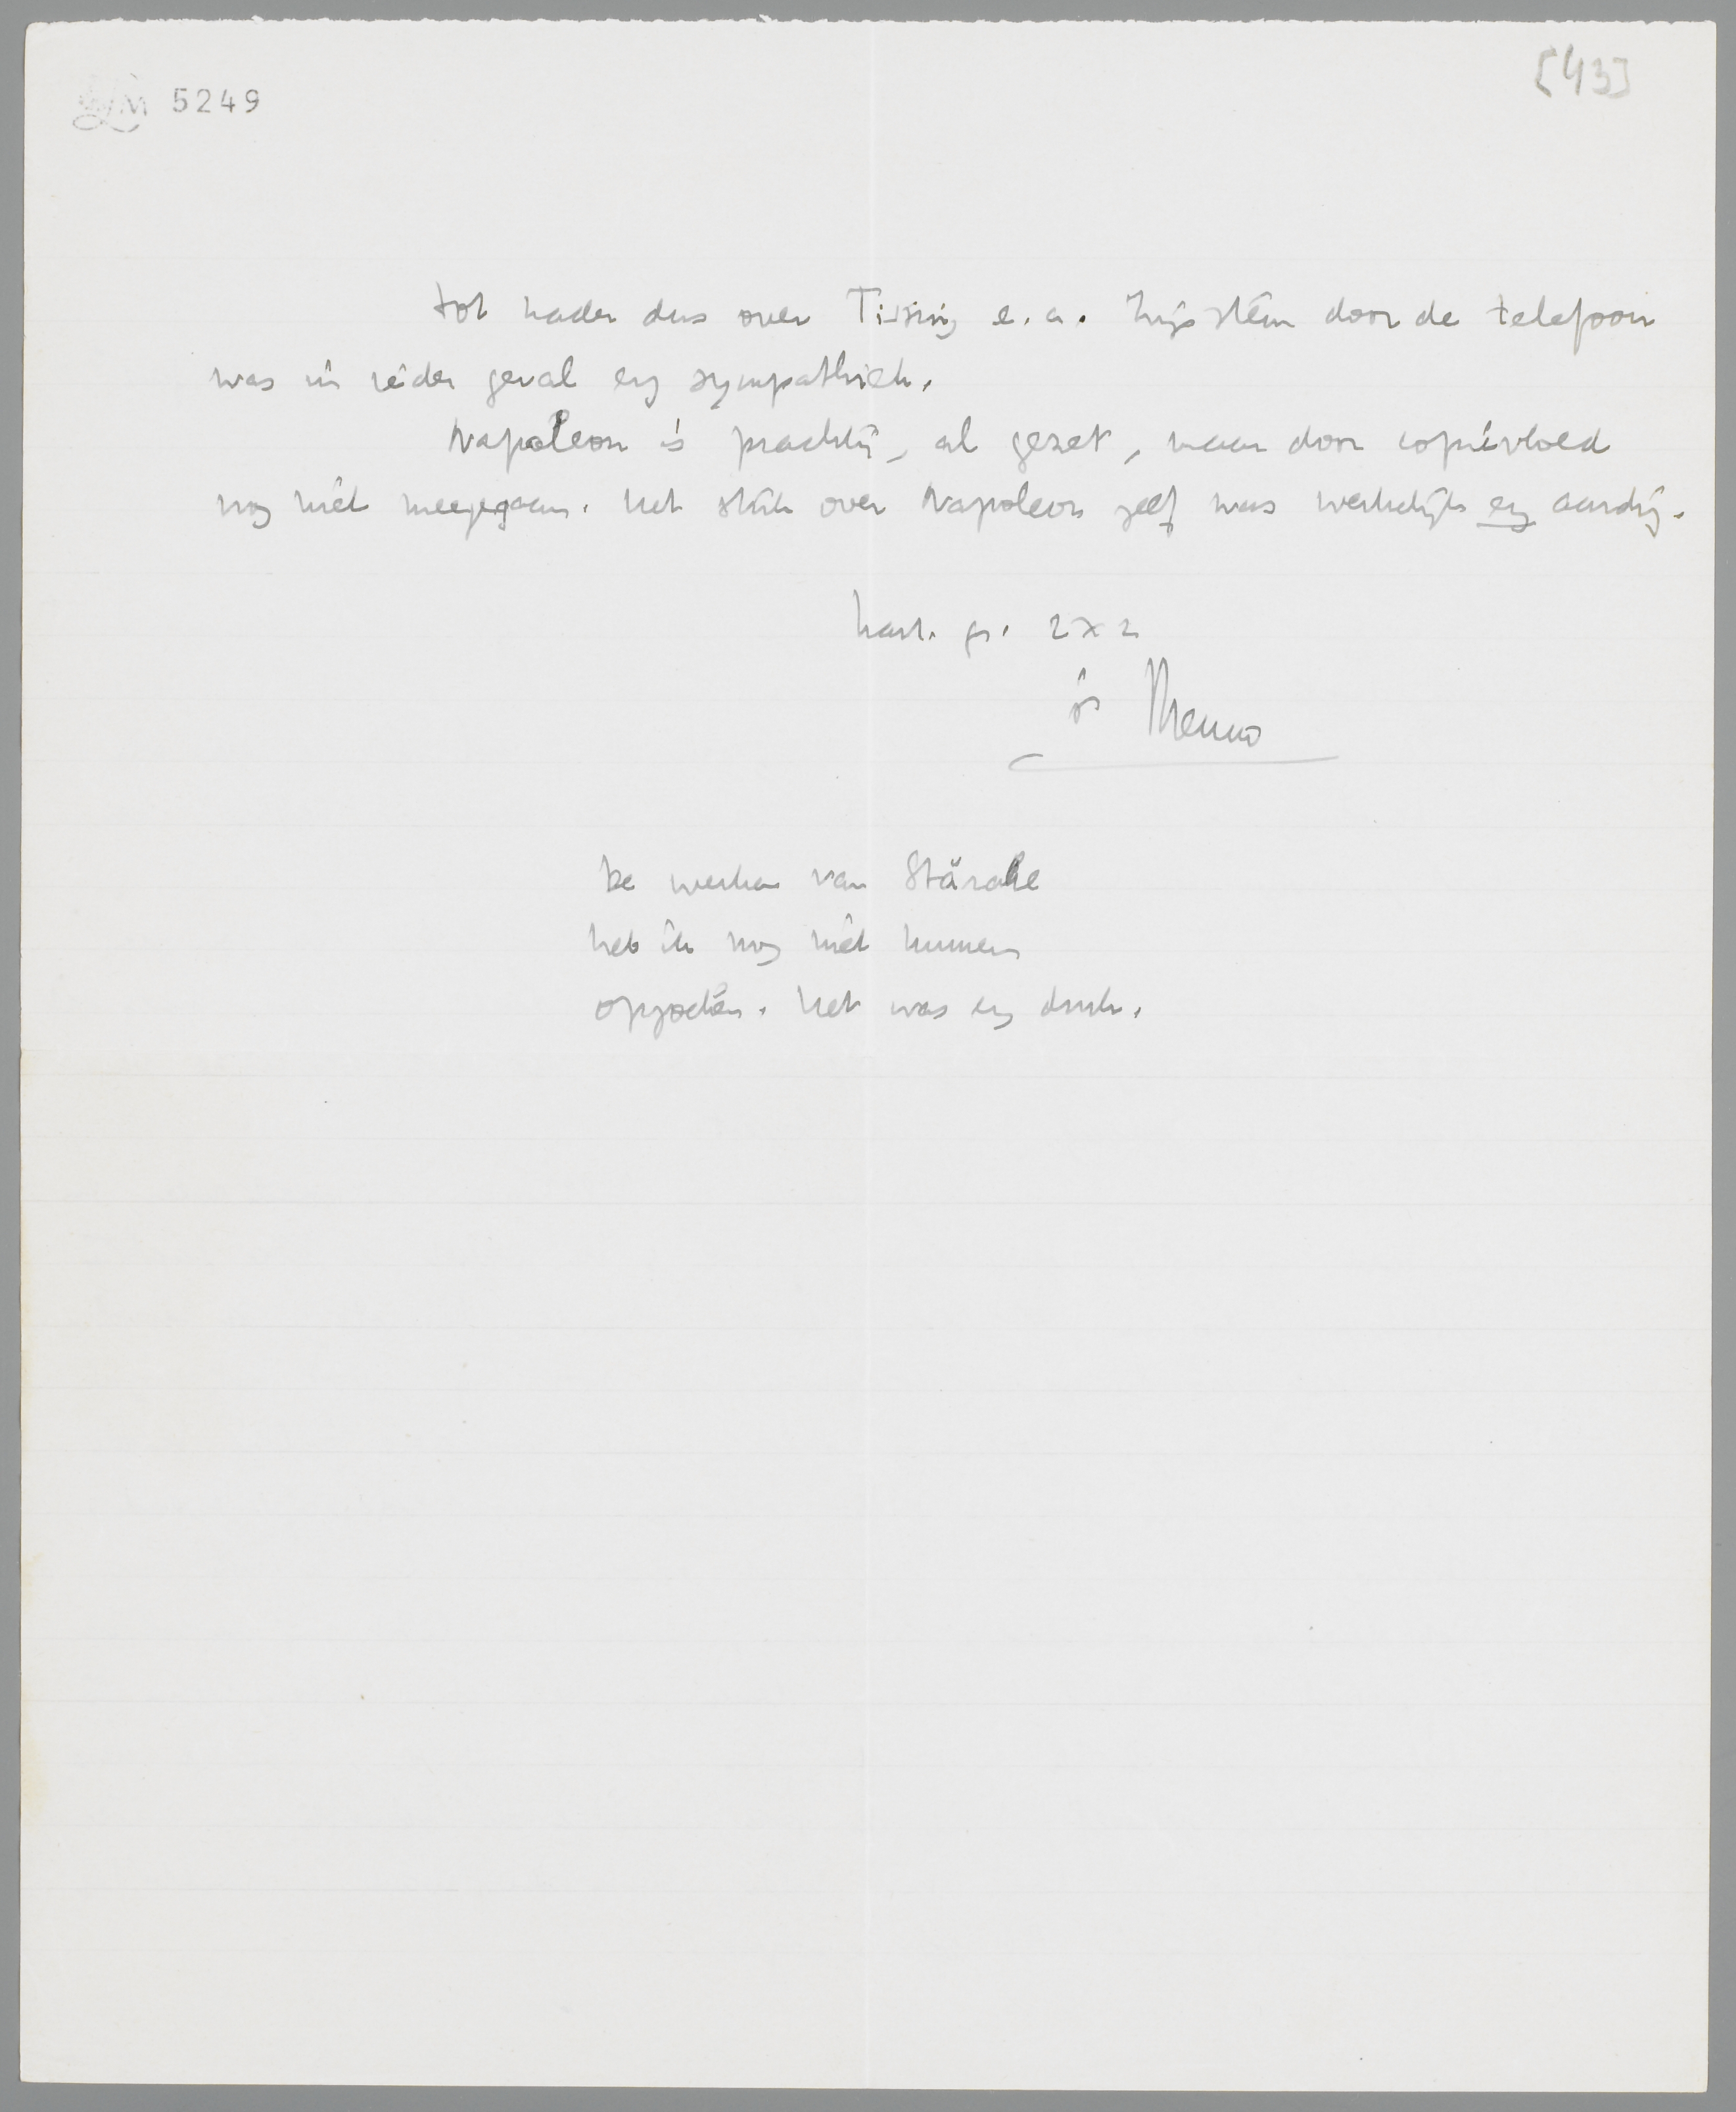 LM 5249
[43]
Tot nader dus over Tissing e.a. Zijn stem door de telefoon
was in ieder geval erg sympathiek.
Napoleon is prachtig, al gezet, maar door copievloed
nog niet meegegaan. Het stuk over Napoleon zelf was werkelijk erg aardig.
hart. gr. 2 x 2
je Menno
De werken van Stärcke
heb ik nog niet kunnen
opzoeken. Het was erg druk.